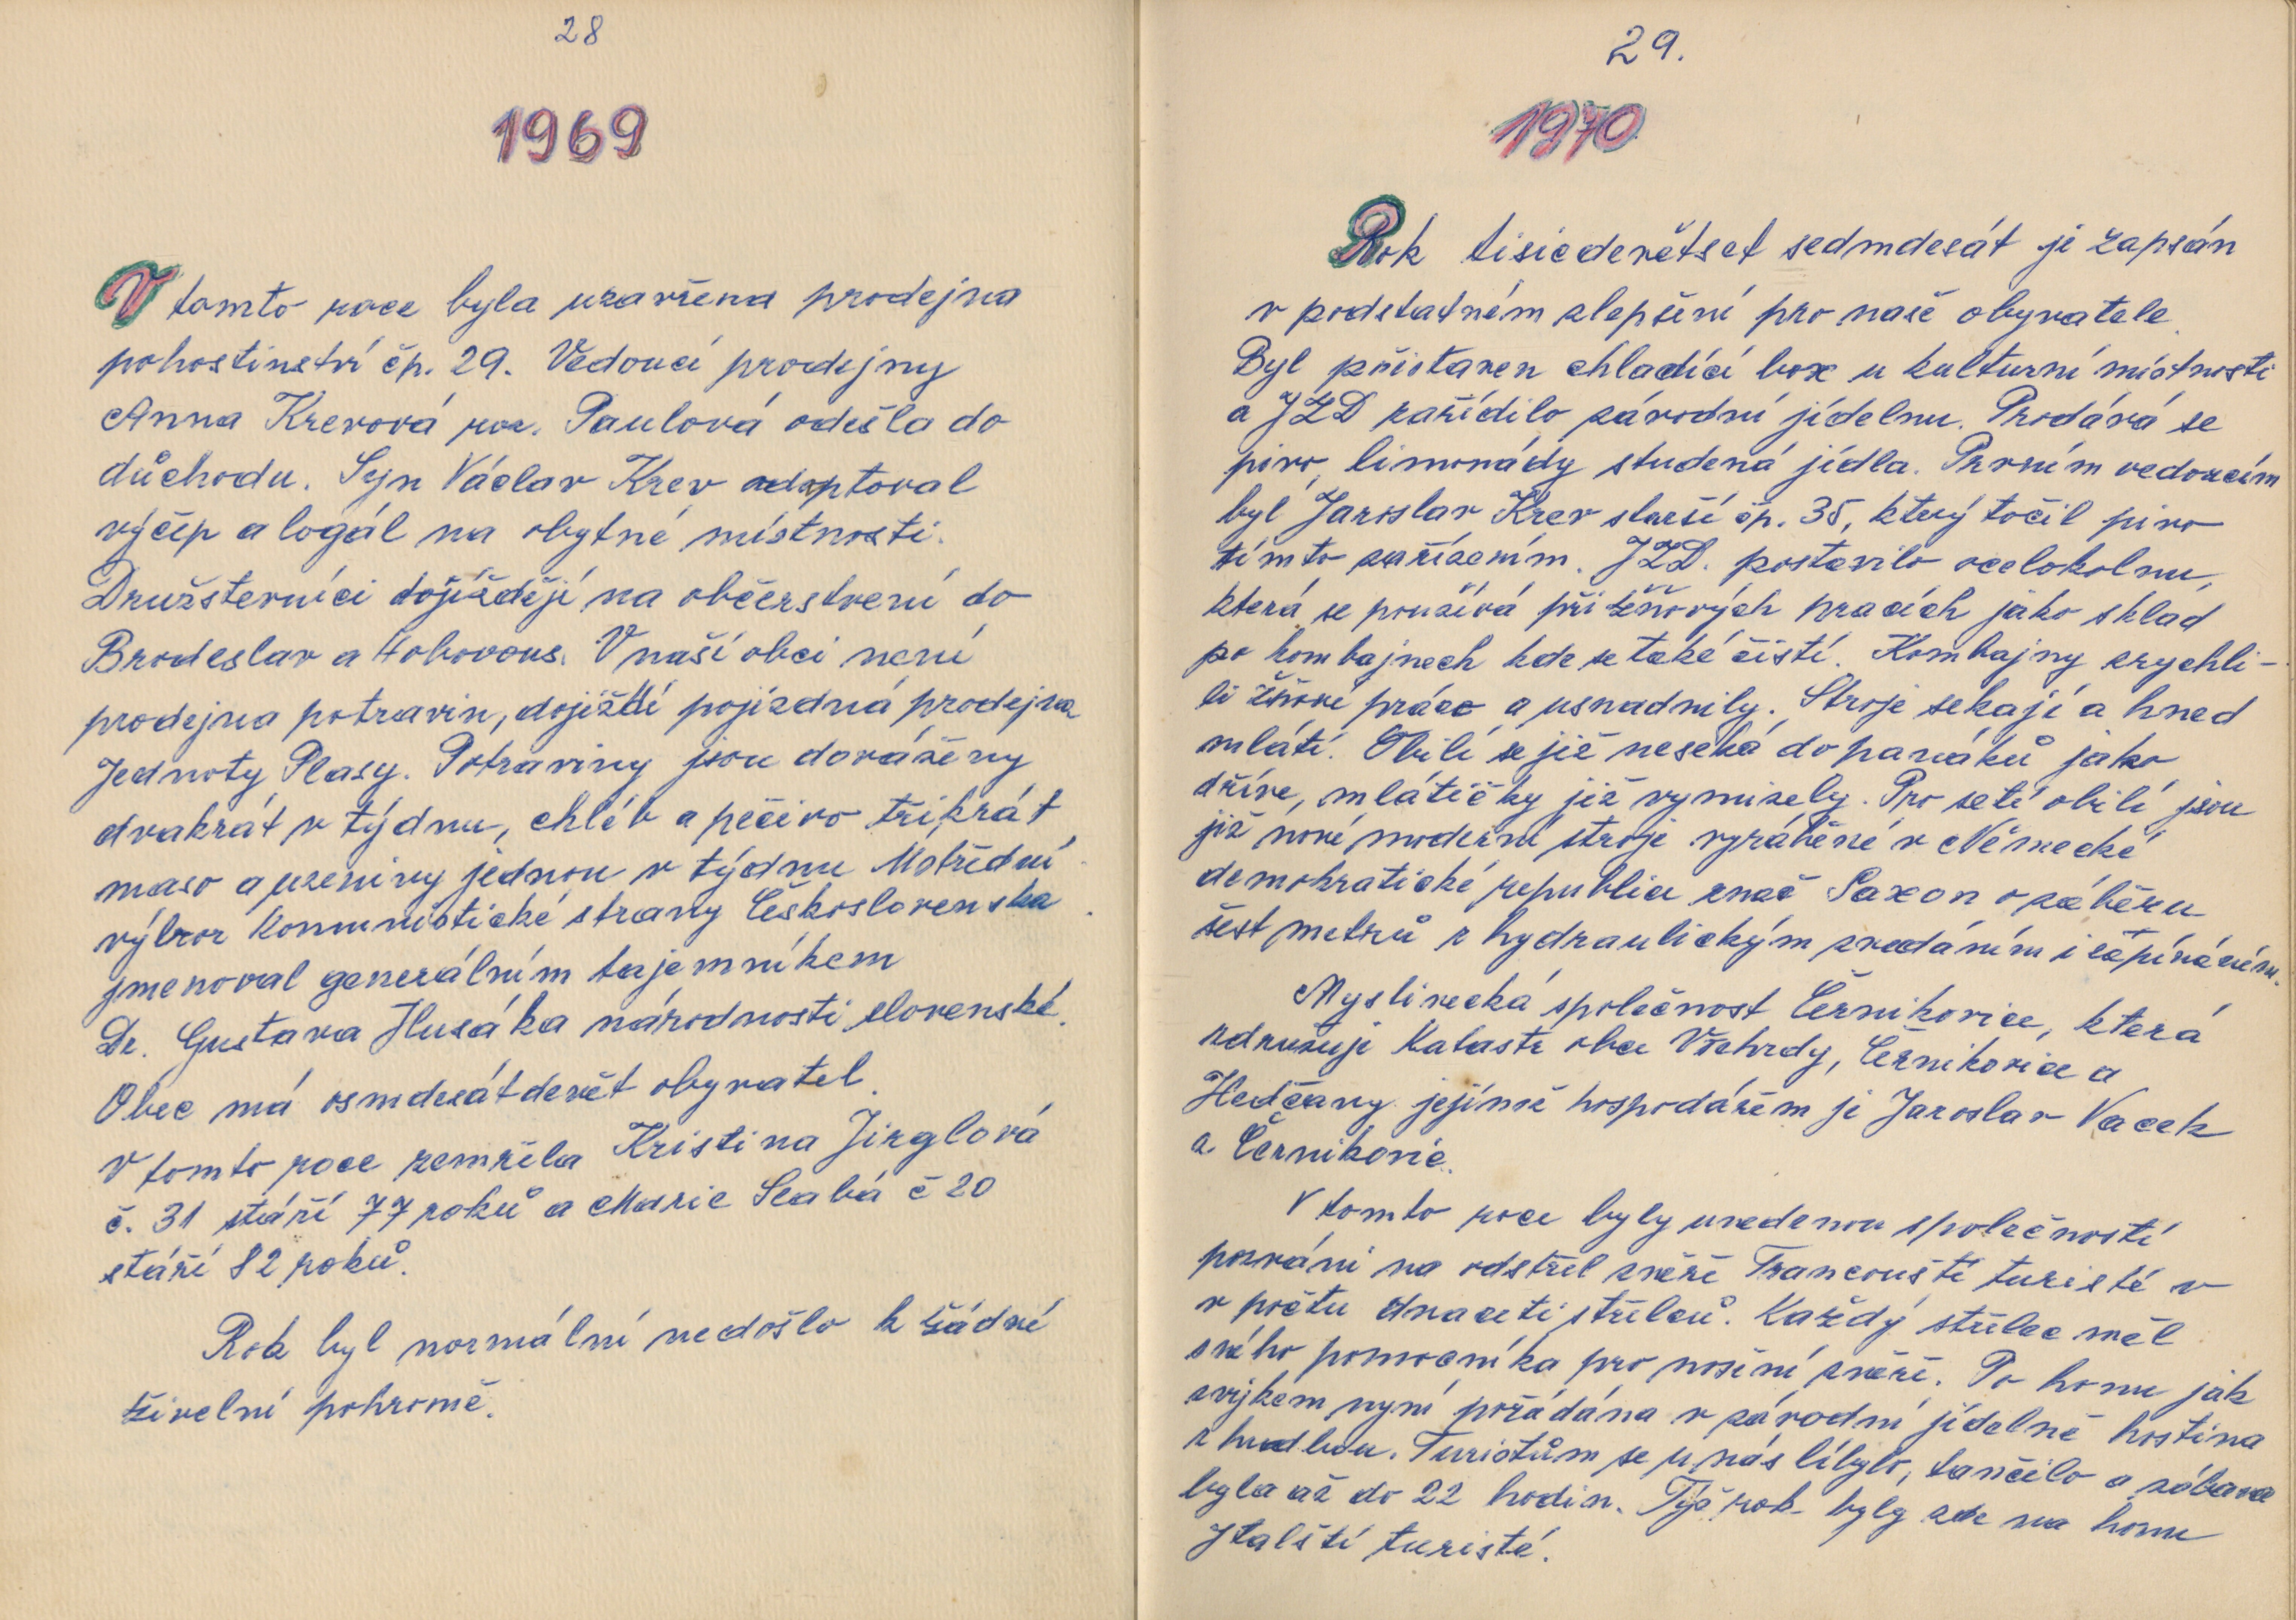 28
1969
V tomto roce byla uzavřena prodejna
pohostinství čp. 29. Vedoucí prodejny
Anna Krevová roz. Paulová odešla do
důchodu. Syn Václav Krev adaptoval
výčep a logál na obytné místnosti.
Družsterníci dojíždějí na občerstvení do
Brodeslav a Hobovous. V naší obci není
prodejna potravin, dojíždí pojízdná prodejna
Jednoty Plasy. Potraviny jsou dováženy
dvakrát v týdnu, chléb a pečivo třikrát
maso a uzeniny jednou v týdnu Ústřední
výbor Komunistické strany Československa
jmenoval generálním tajemníkem
Dr. Gustava Husáka národnosti slovenské.
Obec má osmdesátdevět obyvatel.
V tomto roce zemřela Kristina Jirglová
č. 31 stáří 77 roků a Marie Slabá č 20
stáří 82 roků.
Rok byl normální nedošlo k žádné
živelní pohromě.
29.
1970
Rok tisicdevětset sedmdesát je zapsán
v podstatném zlepšení pro naše obyvatele.
Byl přistaven chladící box u kulturní místnosti
a JZD zařídilo závodní jídelnu. Prodává se
pivo, limonády studená jídla. Prvním vedoucím
byl Jaroslav Krev starší čp. 35, který točil pivo
tímto zařízením. JZD. postavilo ocelokolnu,
která se používá při žňových pracích jako sklad
po kombajnech kde se také čistí. Kombajny zrychli-
li žňové práce a usnadnily. Stroje sekají a hned
mlátí. Obilí se již neseká do panáků jako
dříve, mlátičky již vymizely. Pro setí obilí jsou
již nové moderní stroje vyráběné v Německé
demokratické republice znač Saxon o záběru
šest metrů z hydraulickým zvedáním i zapínáním.
Myslivecká společnost Černikovice, která
združuje Katastr obce Všehrdy, Černikovice a
Hedčany jejímž hospodářem je Jaroslav Vacek
z Černikovic.
V tomto roce byly uvedenou společností
pozváni na odstřel zvěře Francouští turisté v
v počtu dvaceti střelců. Každý střelec měl
svého pomocníka pro nošení zvěře. Po honu jak
zvykem nyní pořádána v závodní jídelně hostina
z hudbou. Turistům se u nás líbylo, tančilo a zábava
byla až do 22 hodin. Týž rok byly zde na honu
Italští turisté.